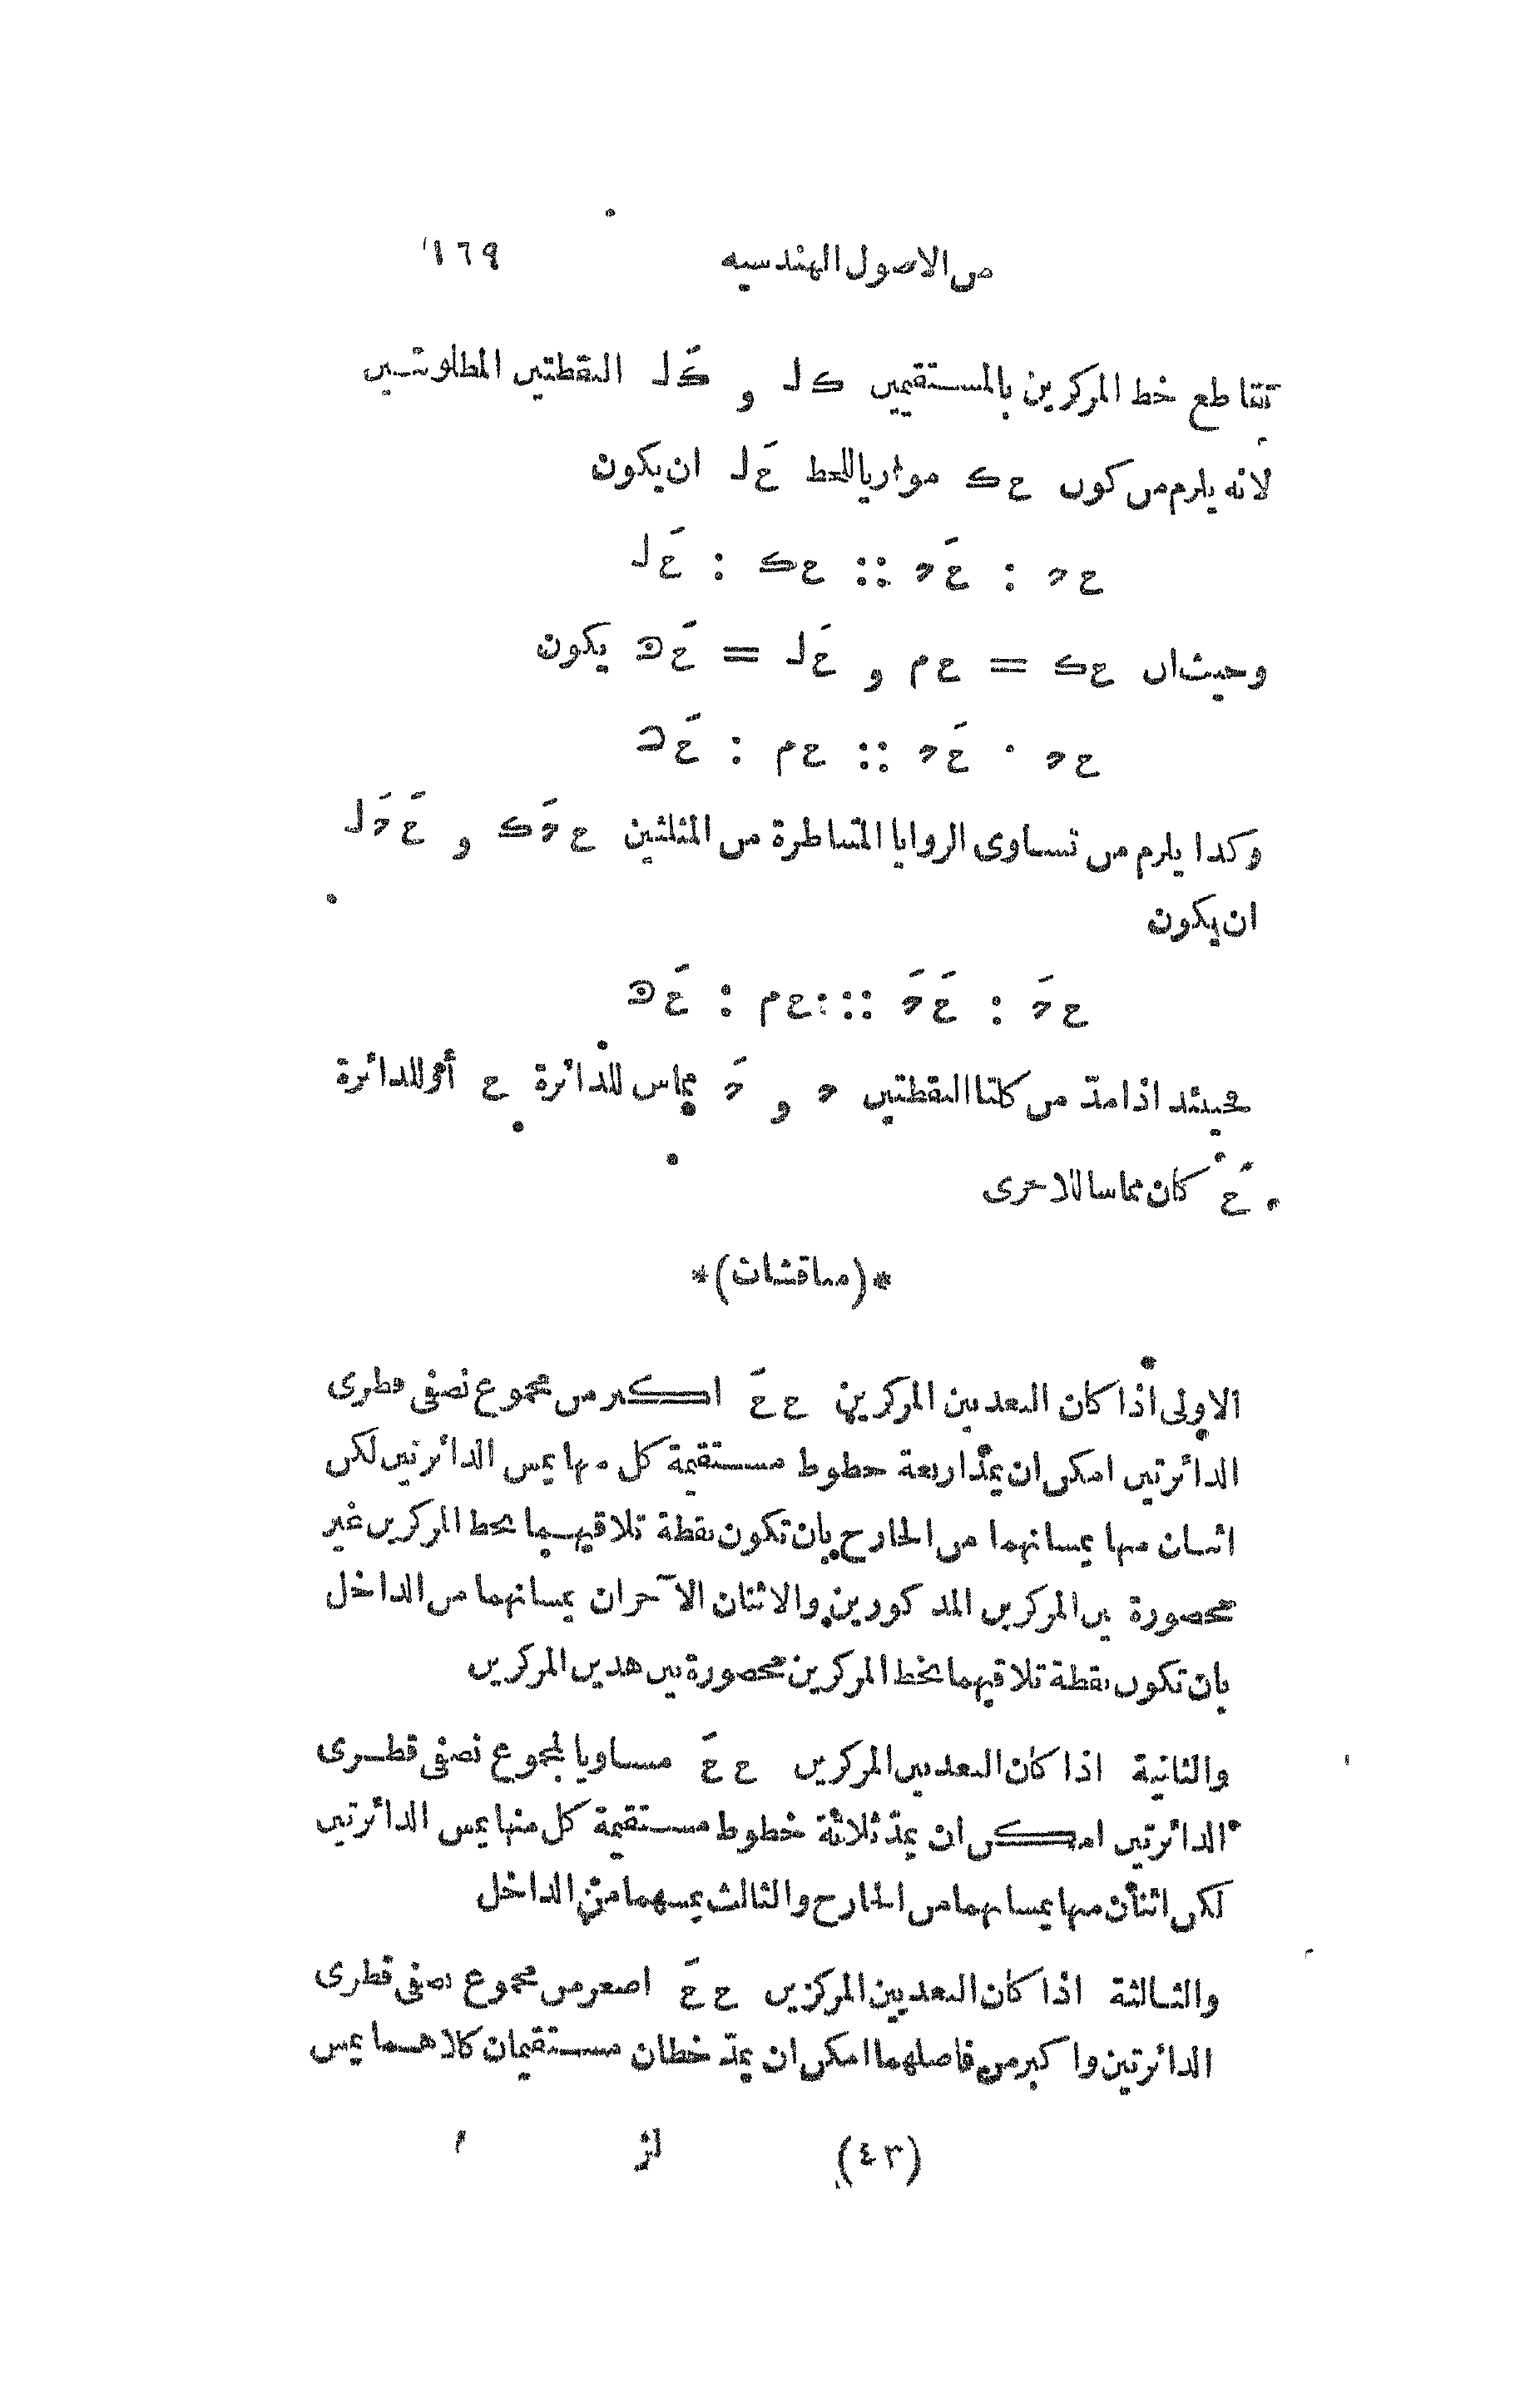 من الاصول الهندسيه ١٦٩
تتقاطع خط المركزين بالمستقيمين ك ل و كَ ل النقطتين المطلوبتين
لانه يلزم من كون ح ك موازيا للخط حَ ل ان يكون
ح د : حَ د :: ح ك : حَ ل
وحيث ان ح ك = ح م و حَ ل = حَ ه يكون
ح د : حَ د :: ح م : حَ ه
وكذا يلزم من تساوى الزوايا المتناظرة من المثلثين ح دَ ك و حَ دَ ل
ان يكون
ح دَ : حَ دَ :: ح م : حَ ه
فحينئذ اذا مدّ من كلتا النقطتين د و دَ مماس للدائرة ح أو للدائرة
حَ كان مماسا للاخرى
*(مناقشات)*
الاولى اذا كان البعد بين المركزين ح حَ اكبر من مجموع نصفى قطرى
الدائرتين امكن ان يمدّ اربعة خطوط مستقيمة كل منها يمس الدائرتين لكن
اثنان منها يمسانهما من الخارج بان تكون نقطة تلاقيهما بخط المركزين غير
محصورة بين المركزين المذكورين والاثنان الآخران يمسانهما من الداخل
بان تكون نقطة تلاقيهما بخط المركزين محصورة بين هذين المركزين
والثانية اذا كان البعد بين المركزين ح حَ مساويا لمجموع نصفى قطرى
الدائرتين امكن ان يمدّ ثلاثة خطوط مستقيمة كل منها يمس الدائرتين
لكن اثنان منها يمسانهما من الخارج والثالث يمسهما من الداخل
والثالثة اذا كان البعد بين المركزين ح حَ اصغر من مجموع نصفى قطرى
الدائرتين واكبر من فاصلهما امكن ان يمدّ خطان مستقيمان كلاهما يمس
(٤٣) لژ